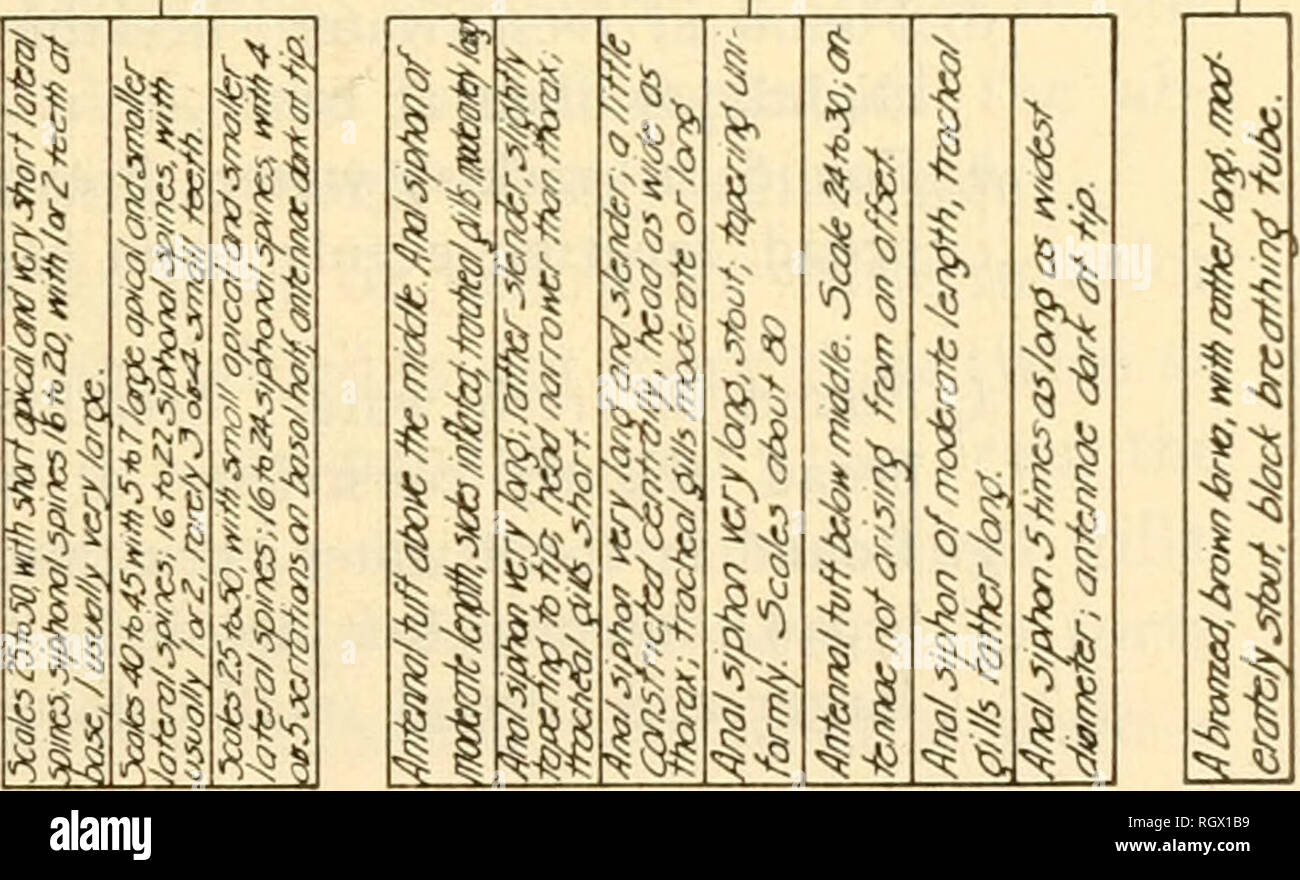 Scales 25 to 30, with short apical and very short lateral
spines; siphonal spines 16 to 20, with 1 or 2 teeth at
base, 1 usually very large.
Scales 40 to 45 with 5 to 7 large apical and smaller
lateral spines; 16 to 22 siphonal spines, with
usually 1 or 2, rarely 3 or 4 small teeth.
Scales 25 to 50, with small apical and smaller
lateral spines; 16 to 24 siphonal spines, with 4
or 5 serrations on basal half, antennae dark at tip.
Antennal tuft above the middle. Anal siphon of
moderate length, sides inflated; tracheal gills moderately long
Anal siphon very long; rather slender, slightly
tapering to tip; head narrower than thorax;
tracheal gills short.
Anal siphon very long and slender; a little
constricted centrally, head as wide as
thorax; tracheal gills moderate or long
Anal siphon very long, stout; tapering uni-
formly. Scales about 80
Antennal tuft below middle. Scale 24 to 30; an-
tennae not arising from an offset.
Anal siphon of moderate length, tracheal
gills rather long.
Anal siphon 5 times as long as widest
diameter; antennae dark at tip.
A bronzed, brown larva, with rather long, mod-
erately stout, black breathing tube.
alamy
Image ID: RGX1B9
www.alamy.com